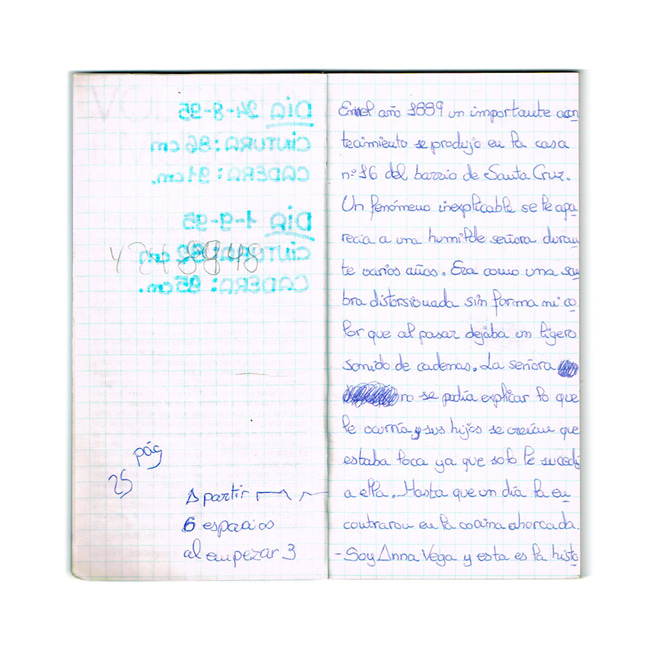 DÍA 24-8-95
CINTURA: 86 cm
CADERA: 91cm.
DÍA 1-9-95
CINTURA: 82 cm
CADERA: 95cm.
pág
25
A partir
6 espacios
al empezar 3
En el año 1889 un importante acon
tecimiento se produjo en la casa
nº 16 del barrio de Santa Cruz.
Un fenómeno inexplicable se le apa
recia a una humilde señora duran
te varios años. Era como una som
bra distorsionada sin forma ni co
lor que al pasar dejaba un ligero
sonido de cadenas. La señora
no se podía explicar lo que
le ocurría y sus hijos se creían que
estaba loca ya que solo le sucedí
a ella. Hasta que un día la en
contraron en la cocina ahorcada.
-Soy Anna Vega y esta es la histo